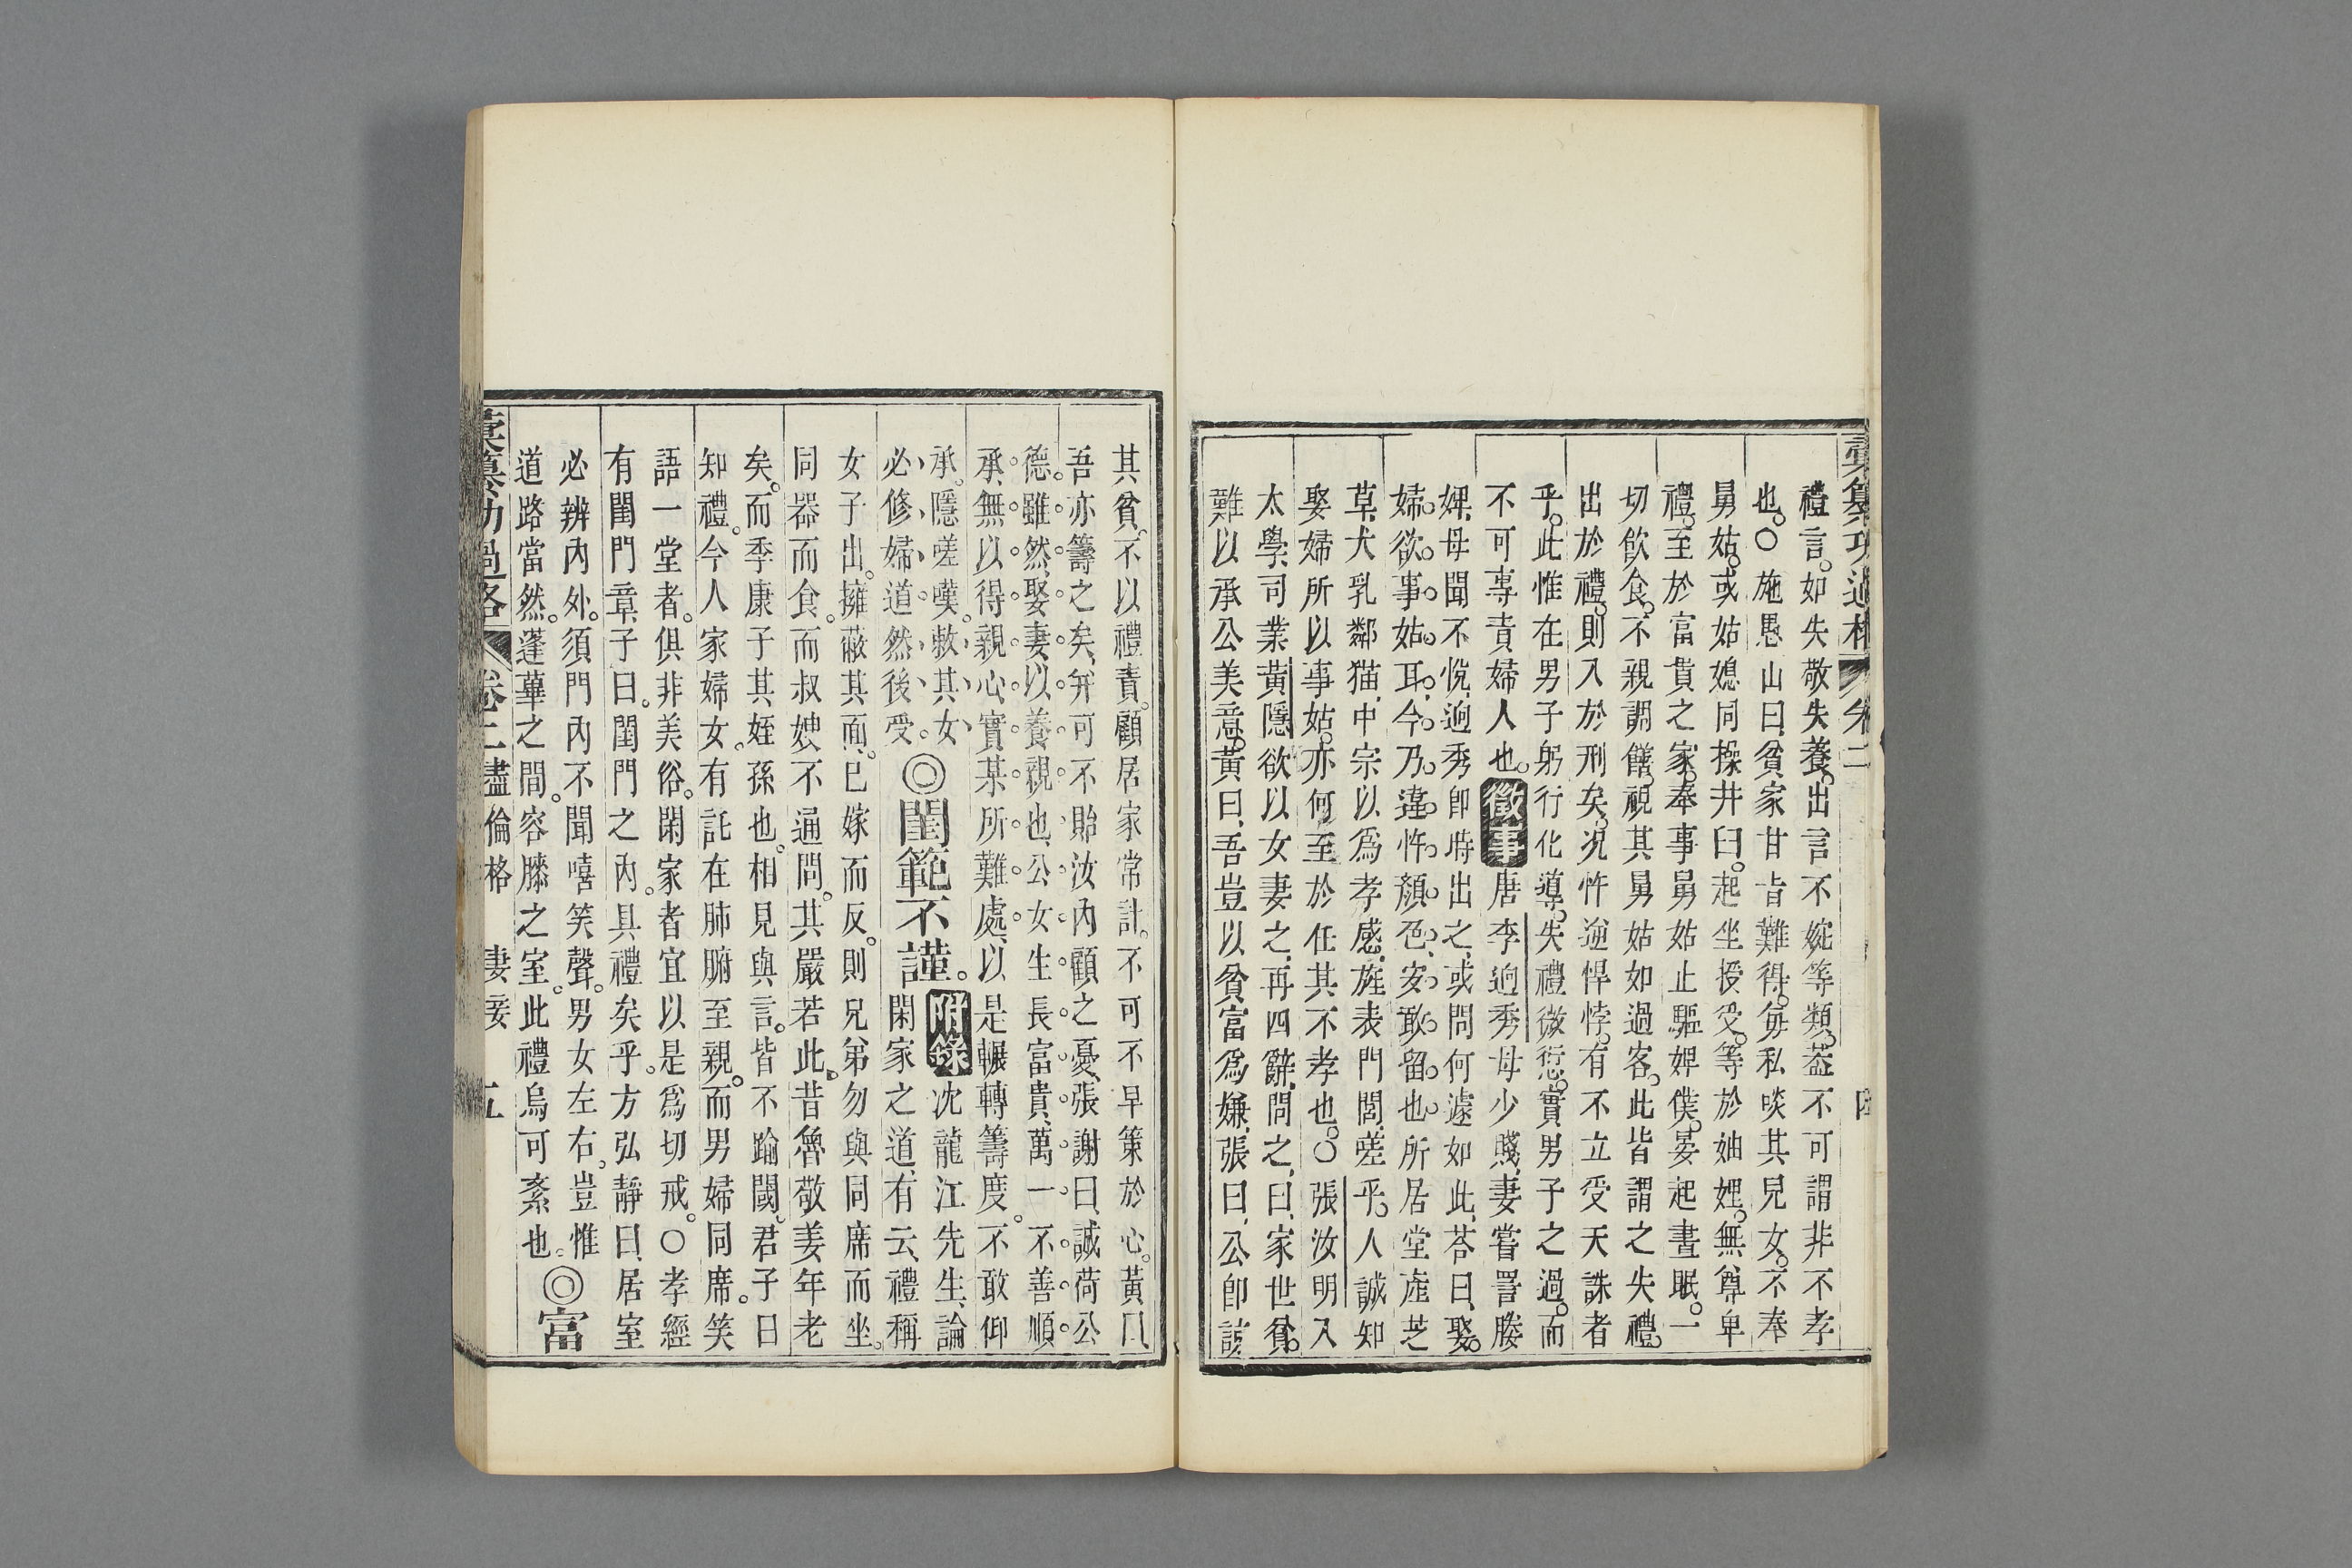 彙纂功過格 卷二
禮言。如失敬失養。出言不婉等類。葢不可謂非不孝
也。○施愚山曰、貧家甘旨難得。每私啖其兒女。不奉
舅姑。或姑媳同操井臼。起坐授受。等於妯娌。無尊卑
禮。至於富貴之家。奉事舅姑止驅婢僕。晏起晝眠。一
切飲食。不親調饍。視其舅姑如過客。此皆謂之失禮。
出於禮。則入於刑矣。况忤逆悍悖。有不立受天誅者
乎。此惟在男子躬行化導。失禮微愆。實男子之過。而
不可專責婦人也。徵事唐李逈秀母少賤、妻嘗詈媵
婢、母聞不悅、逈秀卽時出之、或問何遽如此、荅曰、娶
婦。欲事姑耳、今乃違忤顏色、安敢留也所居堂產芝
草、犬乳鄰猫、中宗以爲孝感、旌表門閭、嗟乎。人誠知
娶婦所以事姑。亦何至於任其不孝也。○張汝明入
太學、司業黃隱欲以女妻之、再四辭、問之、曰、家世貧。
難以承公美意。黃曰、吾豈以貧富爲嫌、張曰、公卽諒
其貧、不以禮責。顧居家常計。不可不早策於心。黃曰
吾亦籌之矣、奔可不貽汝內顧之憂、張謝曰、誠荷公
德。雖然、娶妻以養親也、公女生長富貴、萬一不善順
承、無以得親心、實某所難處、以是輾轉籌度。不敢仰
承。隱嗟嘆。敕其女
必修婦道然後受。◎閨範不謹。附錄沈龍江先生、論
閑家之道、有云、禮稱
女子出。擁蔽其面、已嫁而反。則兄弟勿與同席而坐。
同器而食。而叔嫂不通問。其嚴若此。昔魯敬姜年老
矣。而季康子其姪孫也。相見與言。皆不踰閾。君子曰
知禮。今人家婦女。有託在肺腑至親。而男婦同席。笑
語一堂者。俱非美俗。閑家者宜以是爲切戒。○孝經
有閨門章、子曰。閨門之內。具禮矣乎。方弘靜曰、居室
必辨內外。須門內不聞嘻笑聲。男女左右。豈惟
道路當然。蓬蓽之間。容膝之室。此禮烏可紊也。◎富
彙纂功過格 卷二 盡倫格 妻妾 五